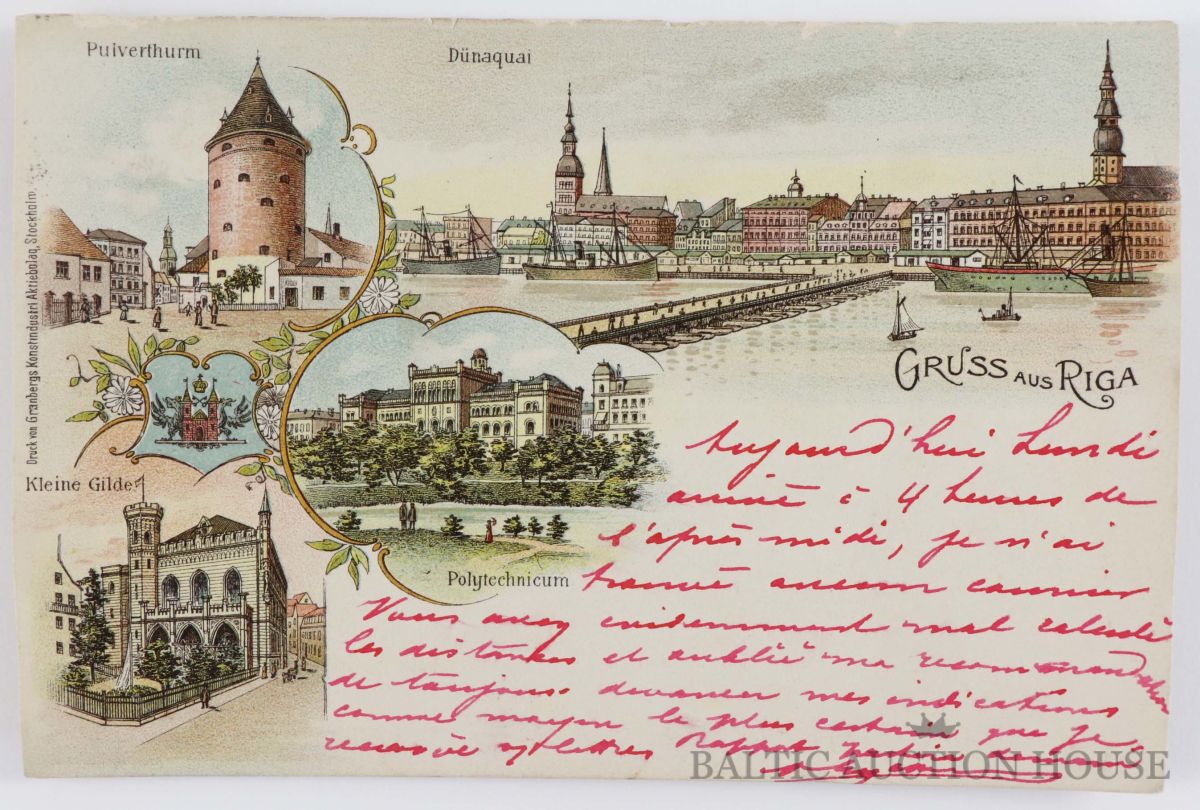 Pulverthurm
Dünaquai
Druck von Granbergs Konstindustri Aktiebolag, Stockholm.
GRUSS AUS RIGA
Kleine Gilde
Polytechnicum
Aujourd'hui Lundi
arrivé à 4 heures de
l'après midi, je n'ai
trouvé aucun courrier
Vous avez evidemment mal calculé
les distances et oublié ma recommandation
de toujours devancer mes indications
comme moyen le plus certain que je
reçoive vos lettres
BALTIC AUCTION HOUSE